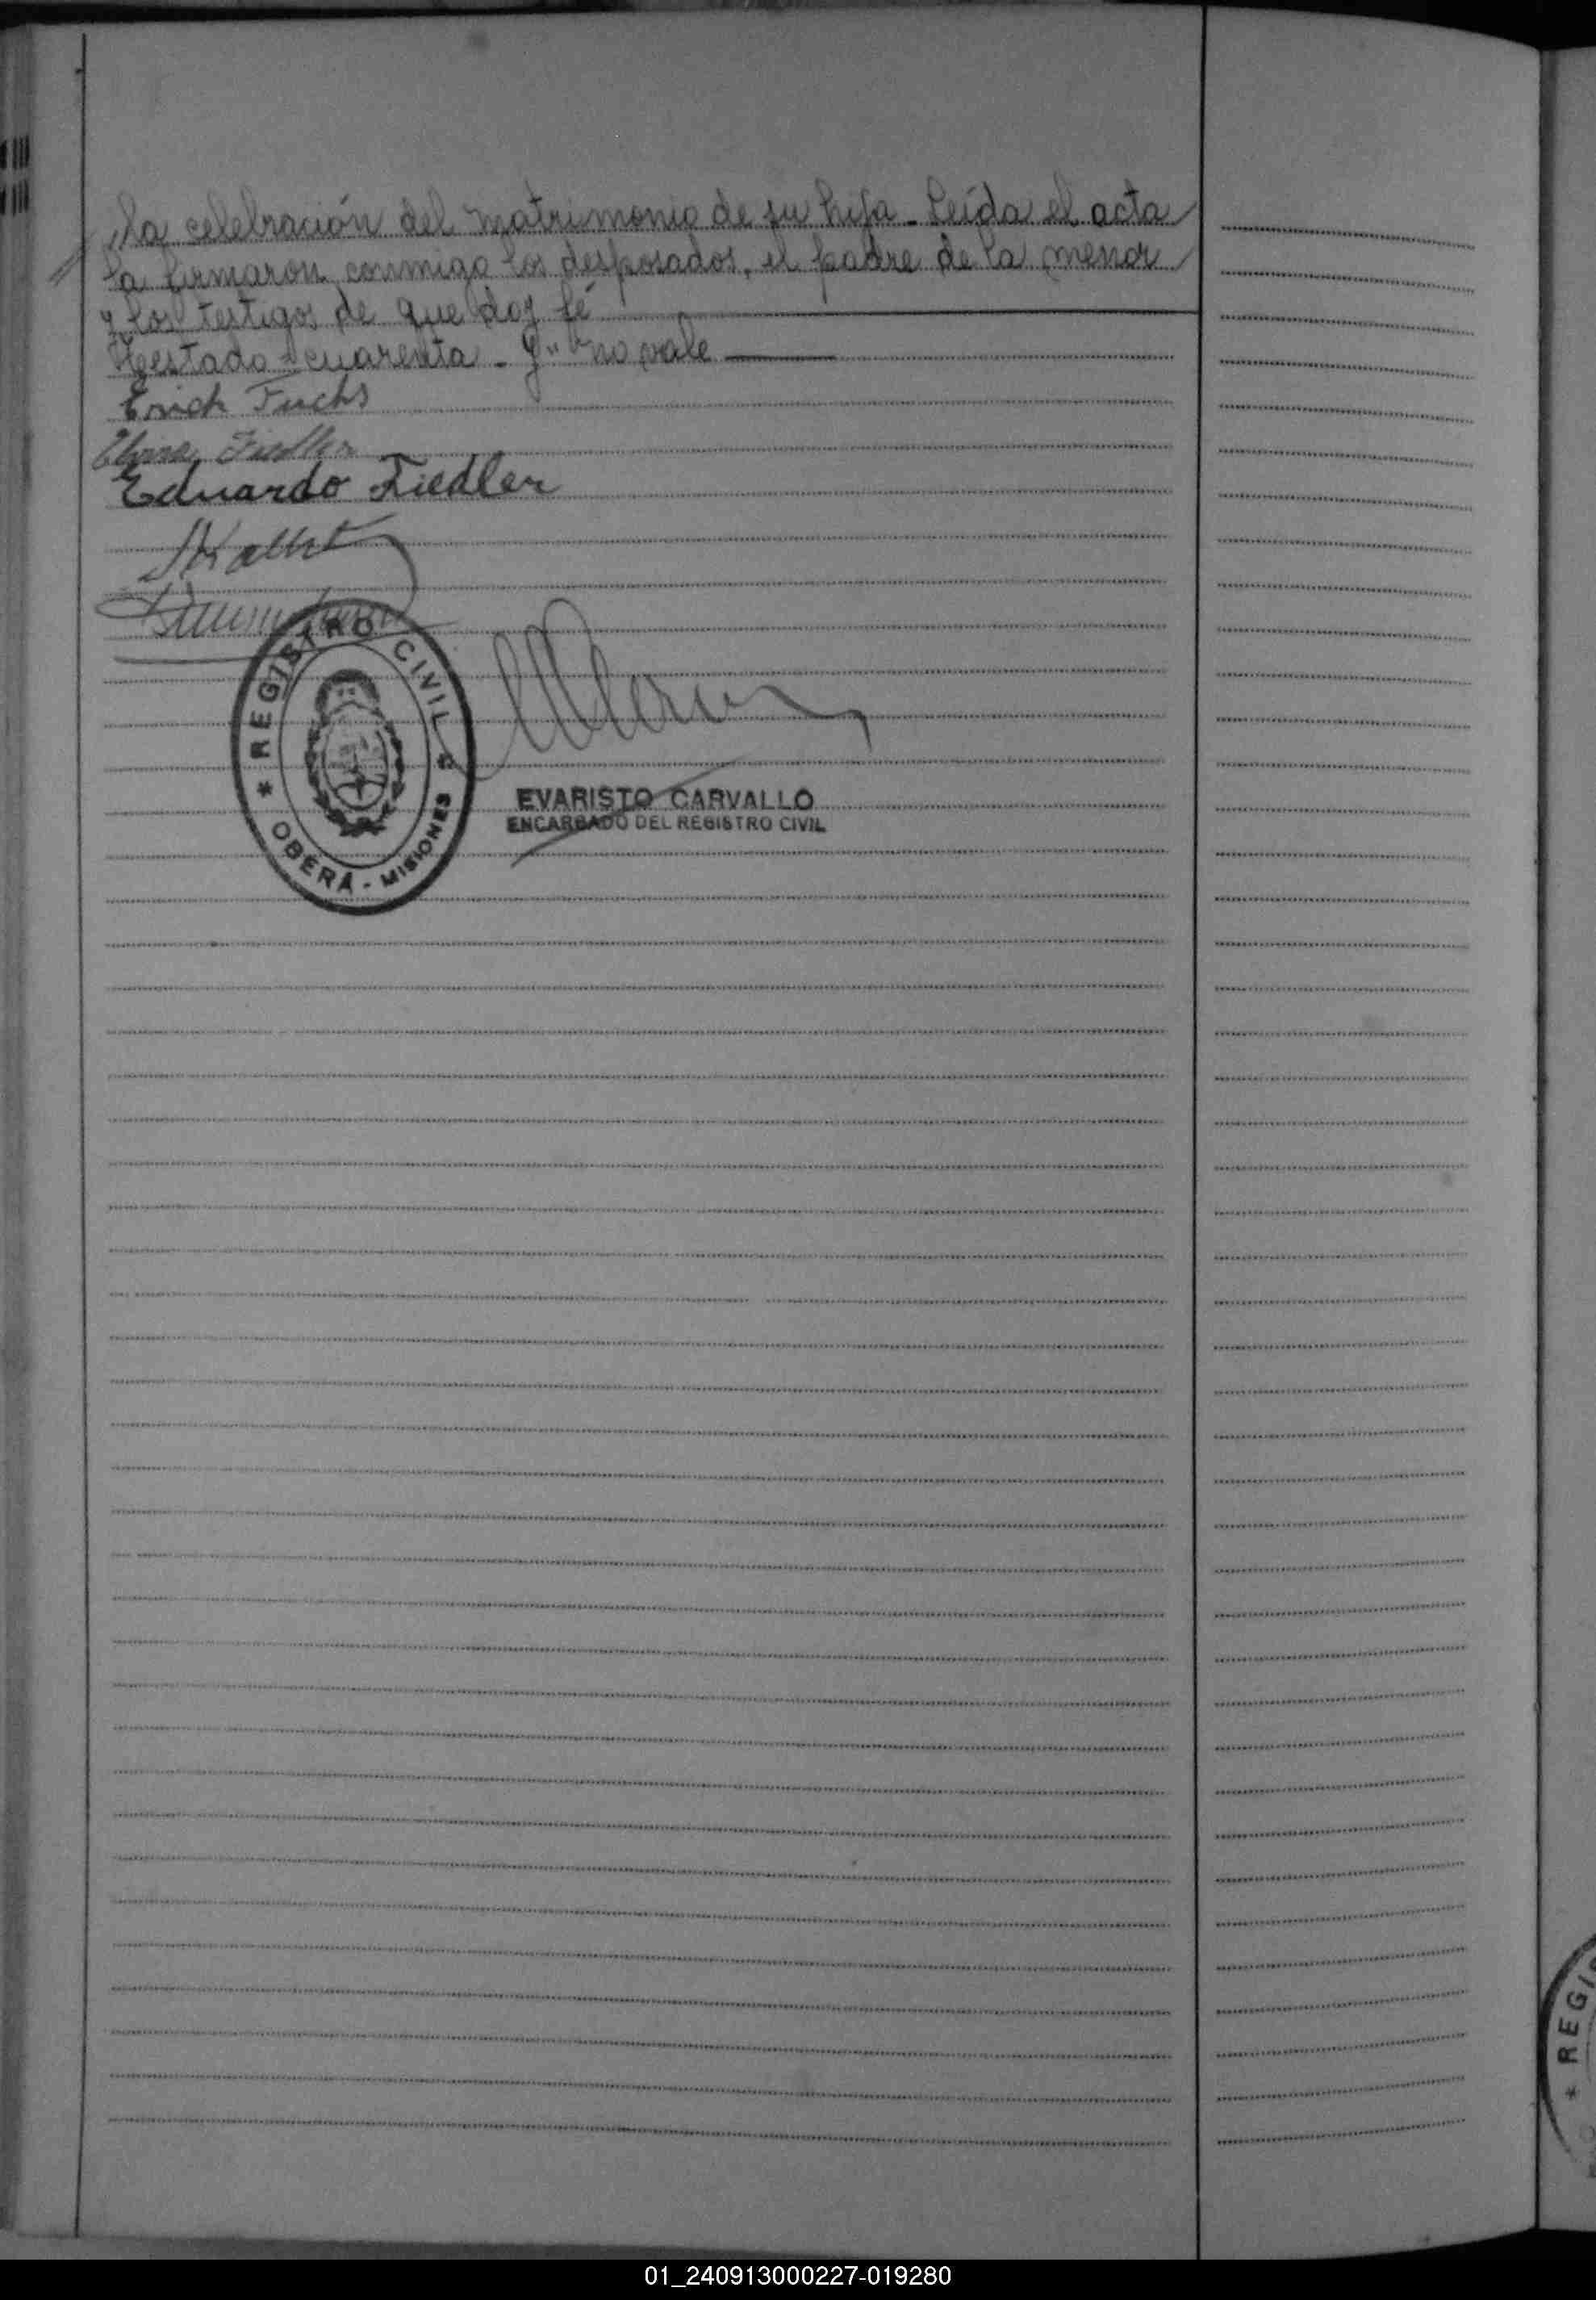 la celebración del matrimonio de su hija - Leída el acta
la firmaron conmigo los desposados, el padre de la menor
y los testigos de que doy fé
Testado - cuarenta - y" no vale
Erich Fuchs
Fiedler
Eduardo Fiedler
* REGISTRO CIVIL *
OBERÁ - MISIONES
EVARISTO CARVALLO
ENCARGADO DEL REGISTRO CIVIL
* REGIS
01_240913000227-019280